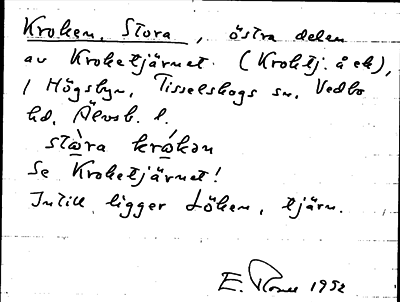 Kroken, Stora, östra delen
av Kroketjärnet. (Kroktj. å ek),
i Högsbyn, Tisselskogs sn. Vedbo
hd. Älvsb. l.
stòra krókən
Se Kroketjärnet!
Intill ligger Löken, tjärn.
E. 1952